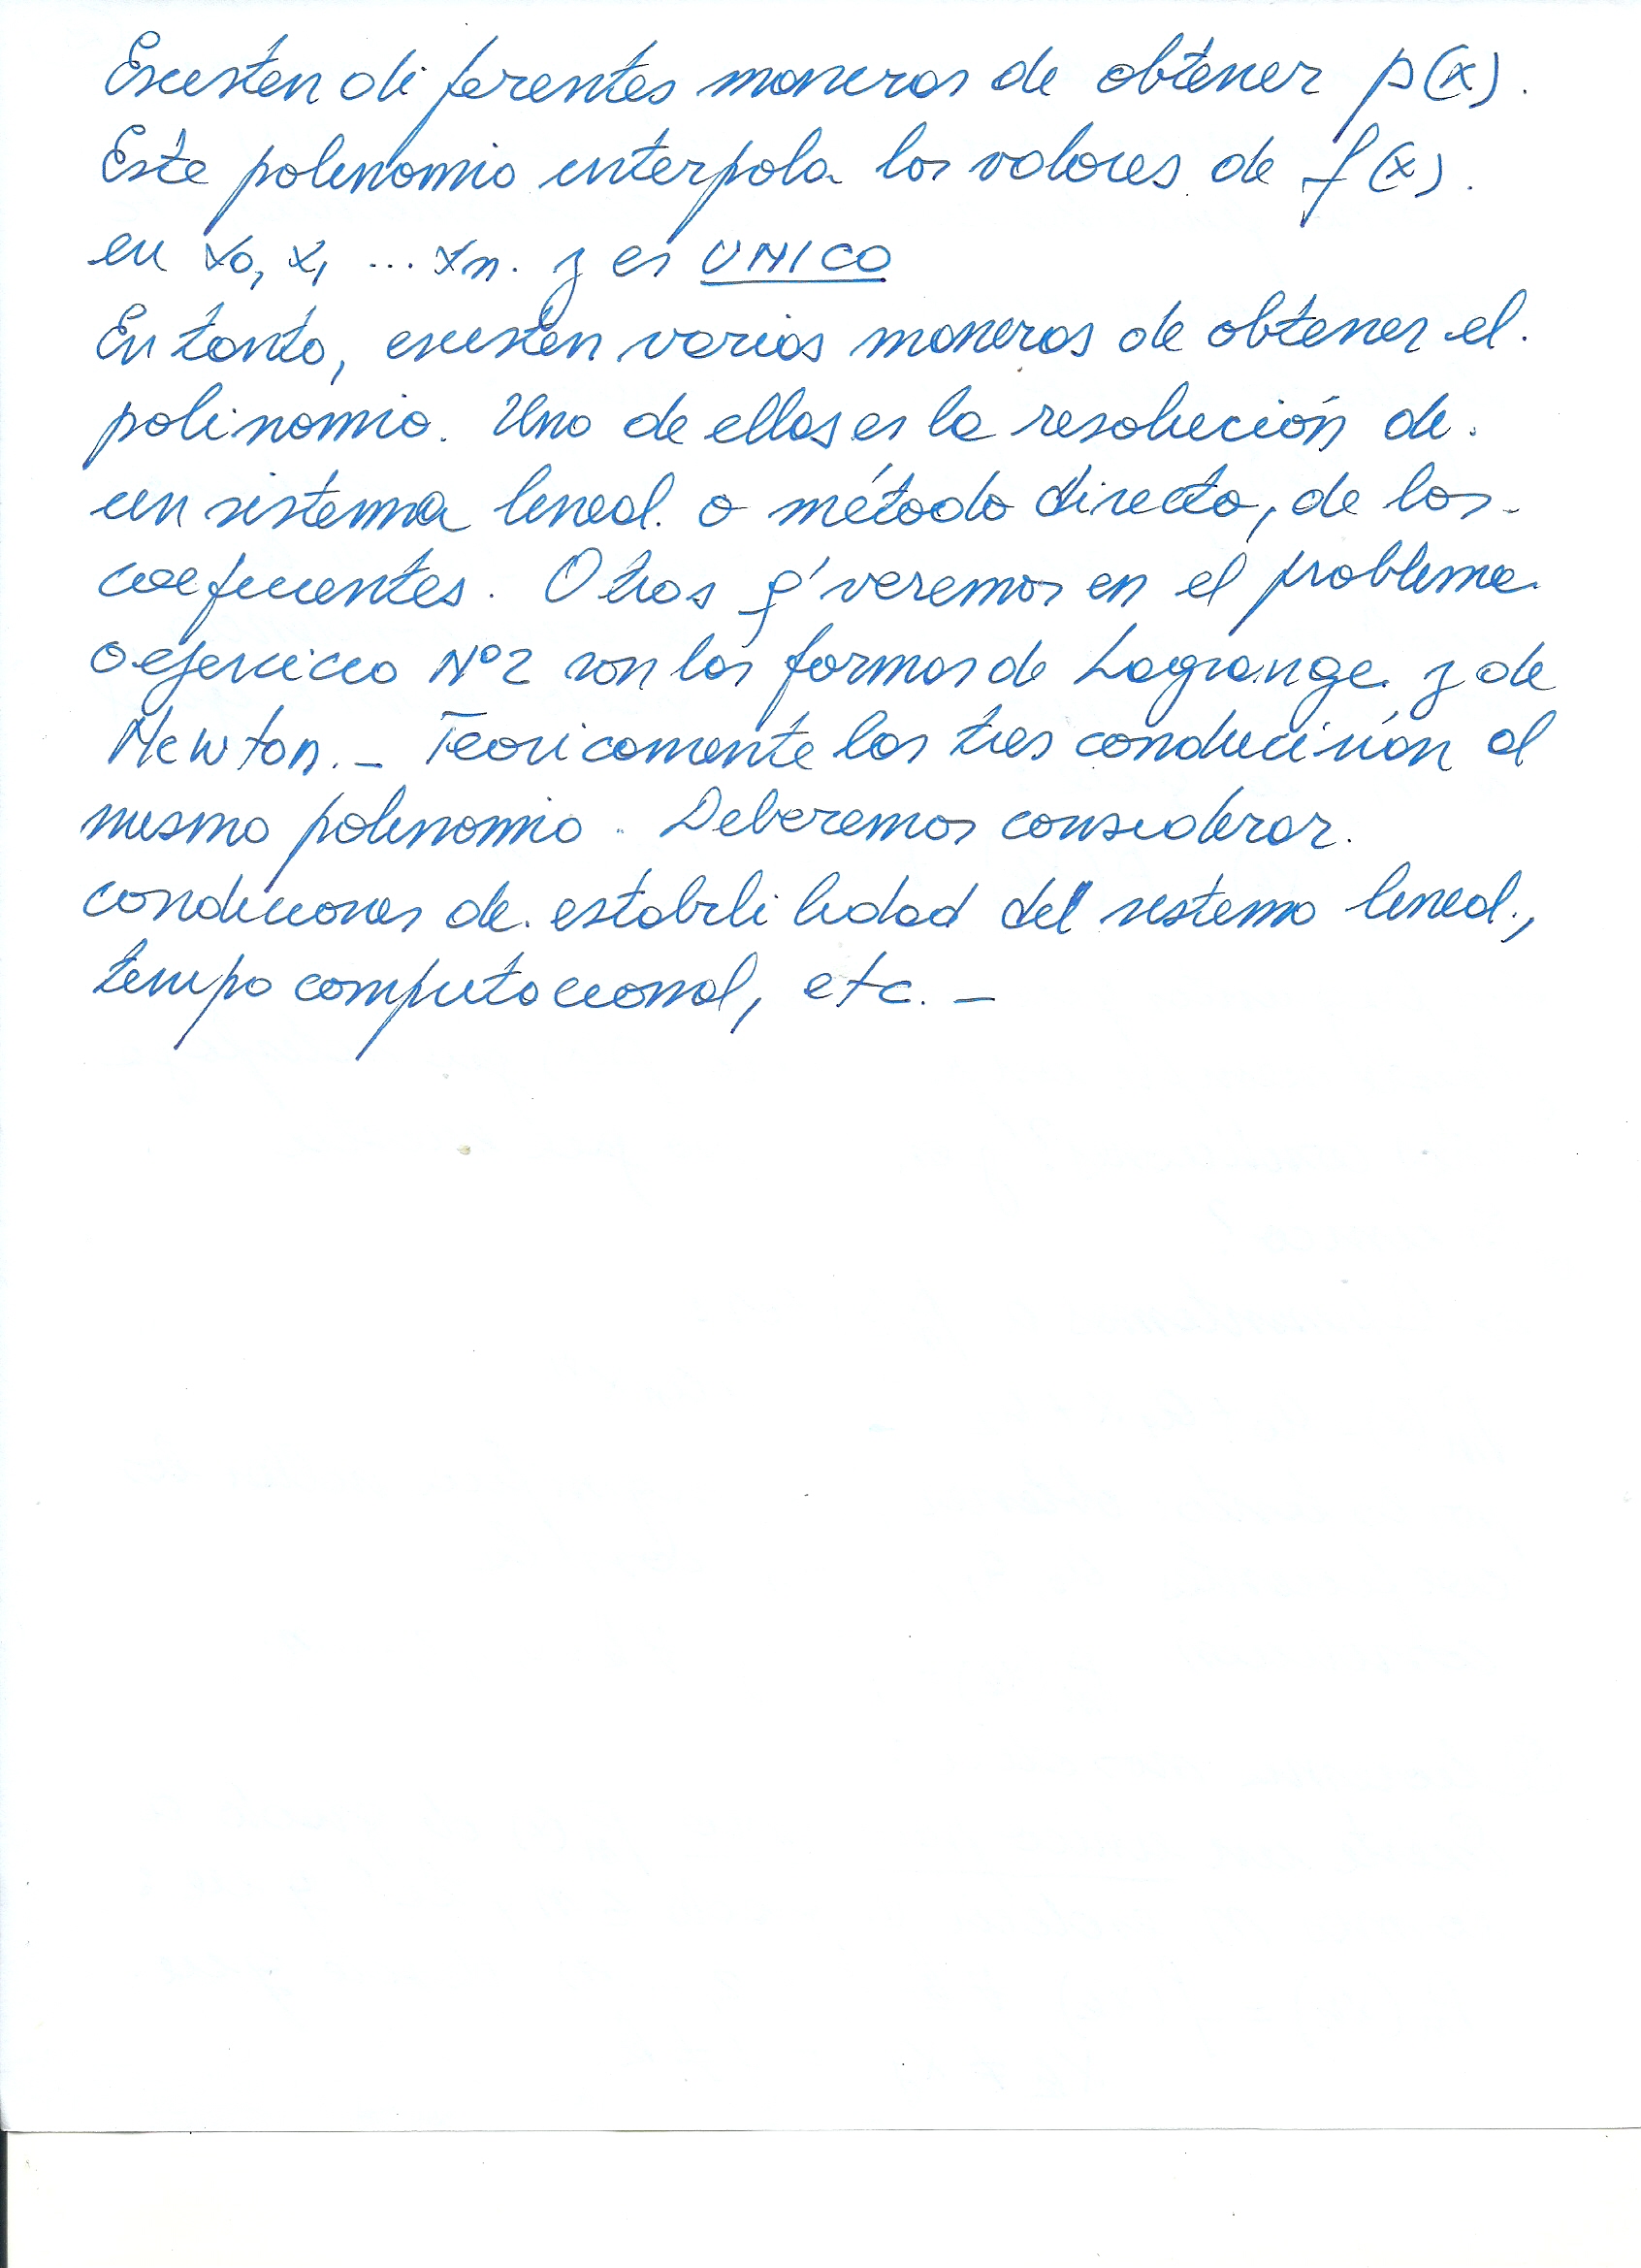 Existen diferentes maneras de obtener p(x).
Este polinomio interpola los valores de f(x).
en x0, x1 ... xn. y es UNICO
En tanto, existen varias maneras de obtener el.
polinomio. Una de ellas es la resolución de.
un sistema lineal. o método directo, de los.
coeficientes. Otras q' veremos en el problema.
o ejercicio Nº2 son las formas de Lagrange. y de
Newton._ Teoricamente las tres conducirían al
mismo polinomio. Deberemos considerar.
condiciones de. estabilidad del sistema lineal.,
tiempo computacional, etc. _